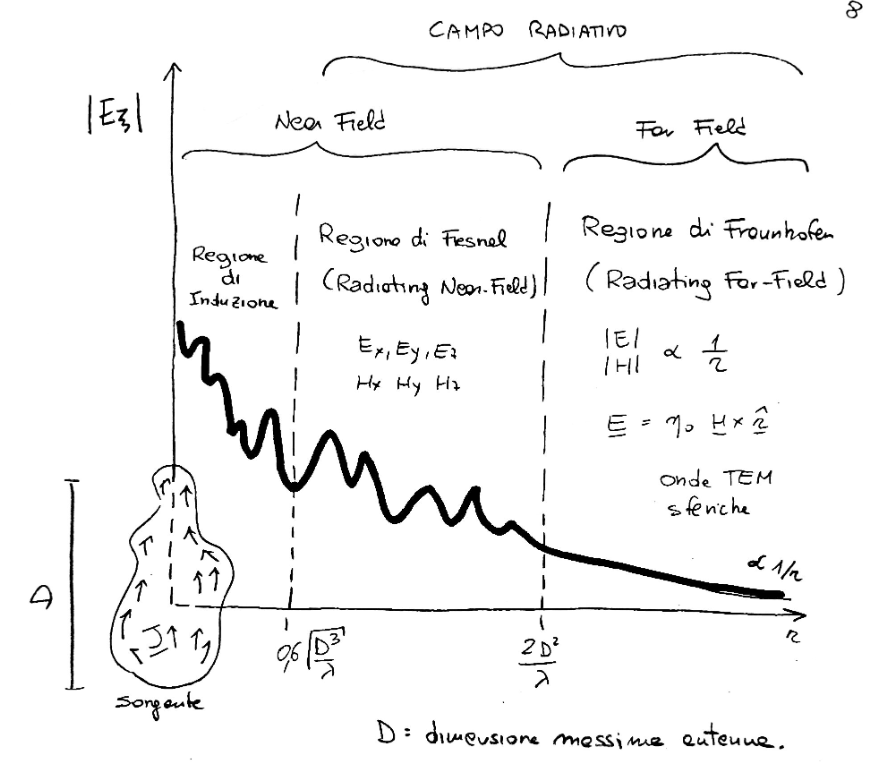 8
CAMPO RADIATIVO
|Ez|
Near Field
Far Field
Regione
di
Induzione
Regione di Fresnel
(Radiating Near-Field)
Ex, Ey, Ez
Hx Hy Hz
Regione di Fraunhofer
(Radiating Far-Field)
|E|
|H| ∝ 1/r
E = η₀ H × r̂
onde TEM
sferiche
∝ 1/r
D
J
sorgente
0,6 √(D³/λ)
2D²/λ
r
D = dimensione massima antenna.